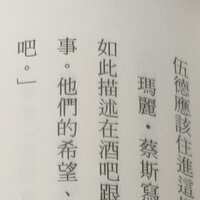 伍德應該住進這
瑪麗・蔡斯寫
如此描述在酒吧跟
事。他們的希望、
吧。」